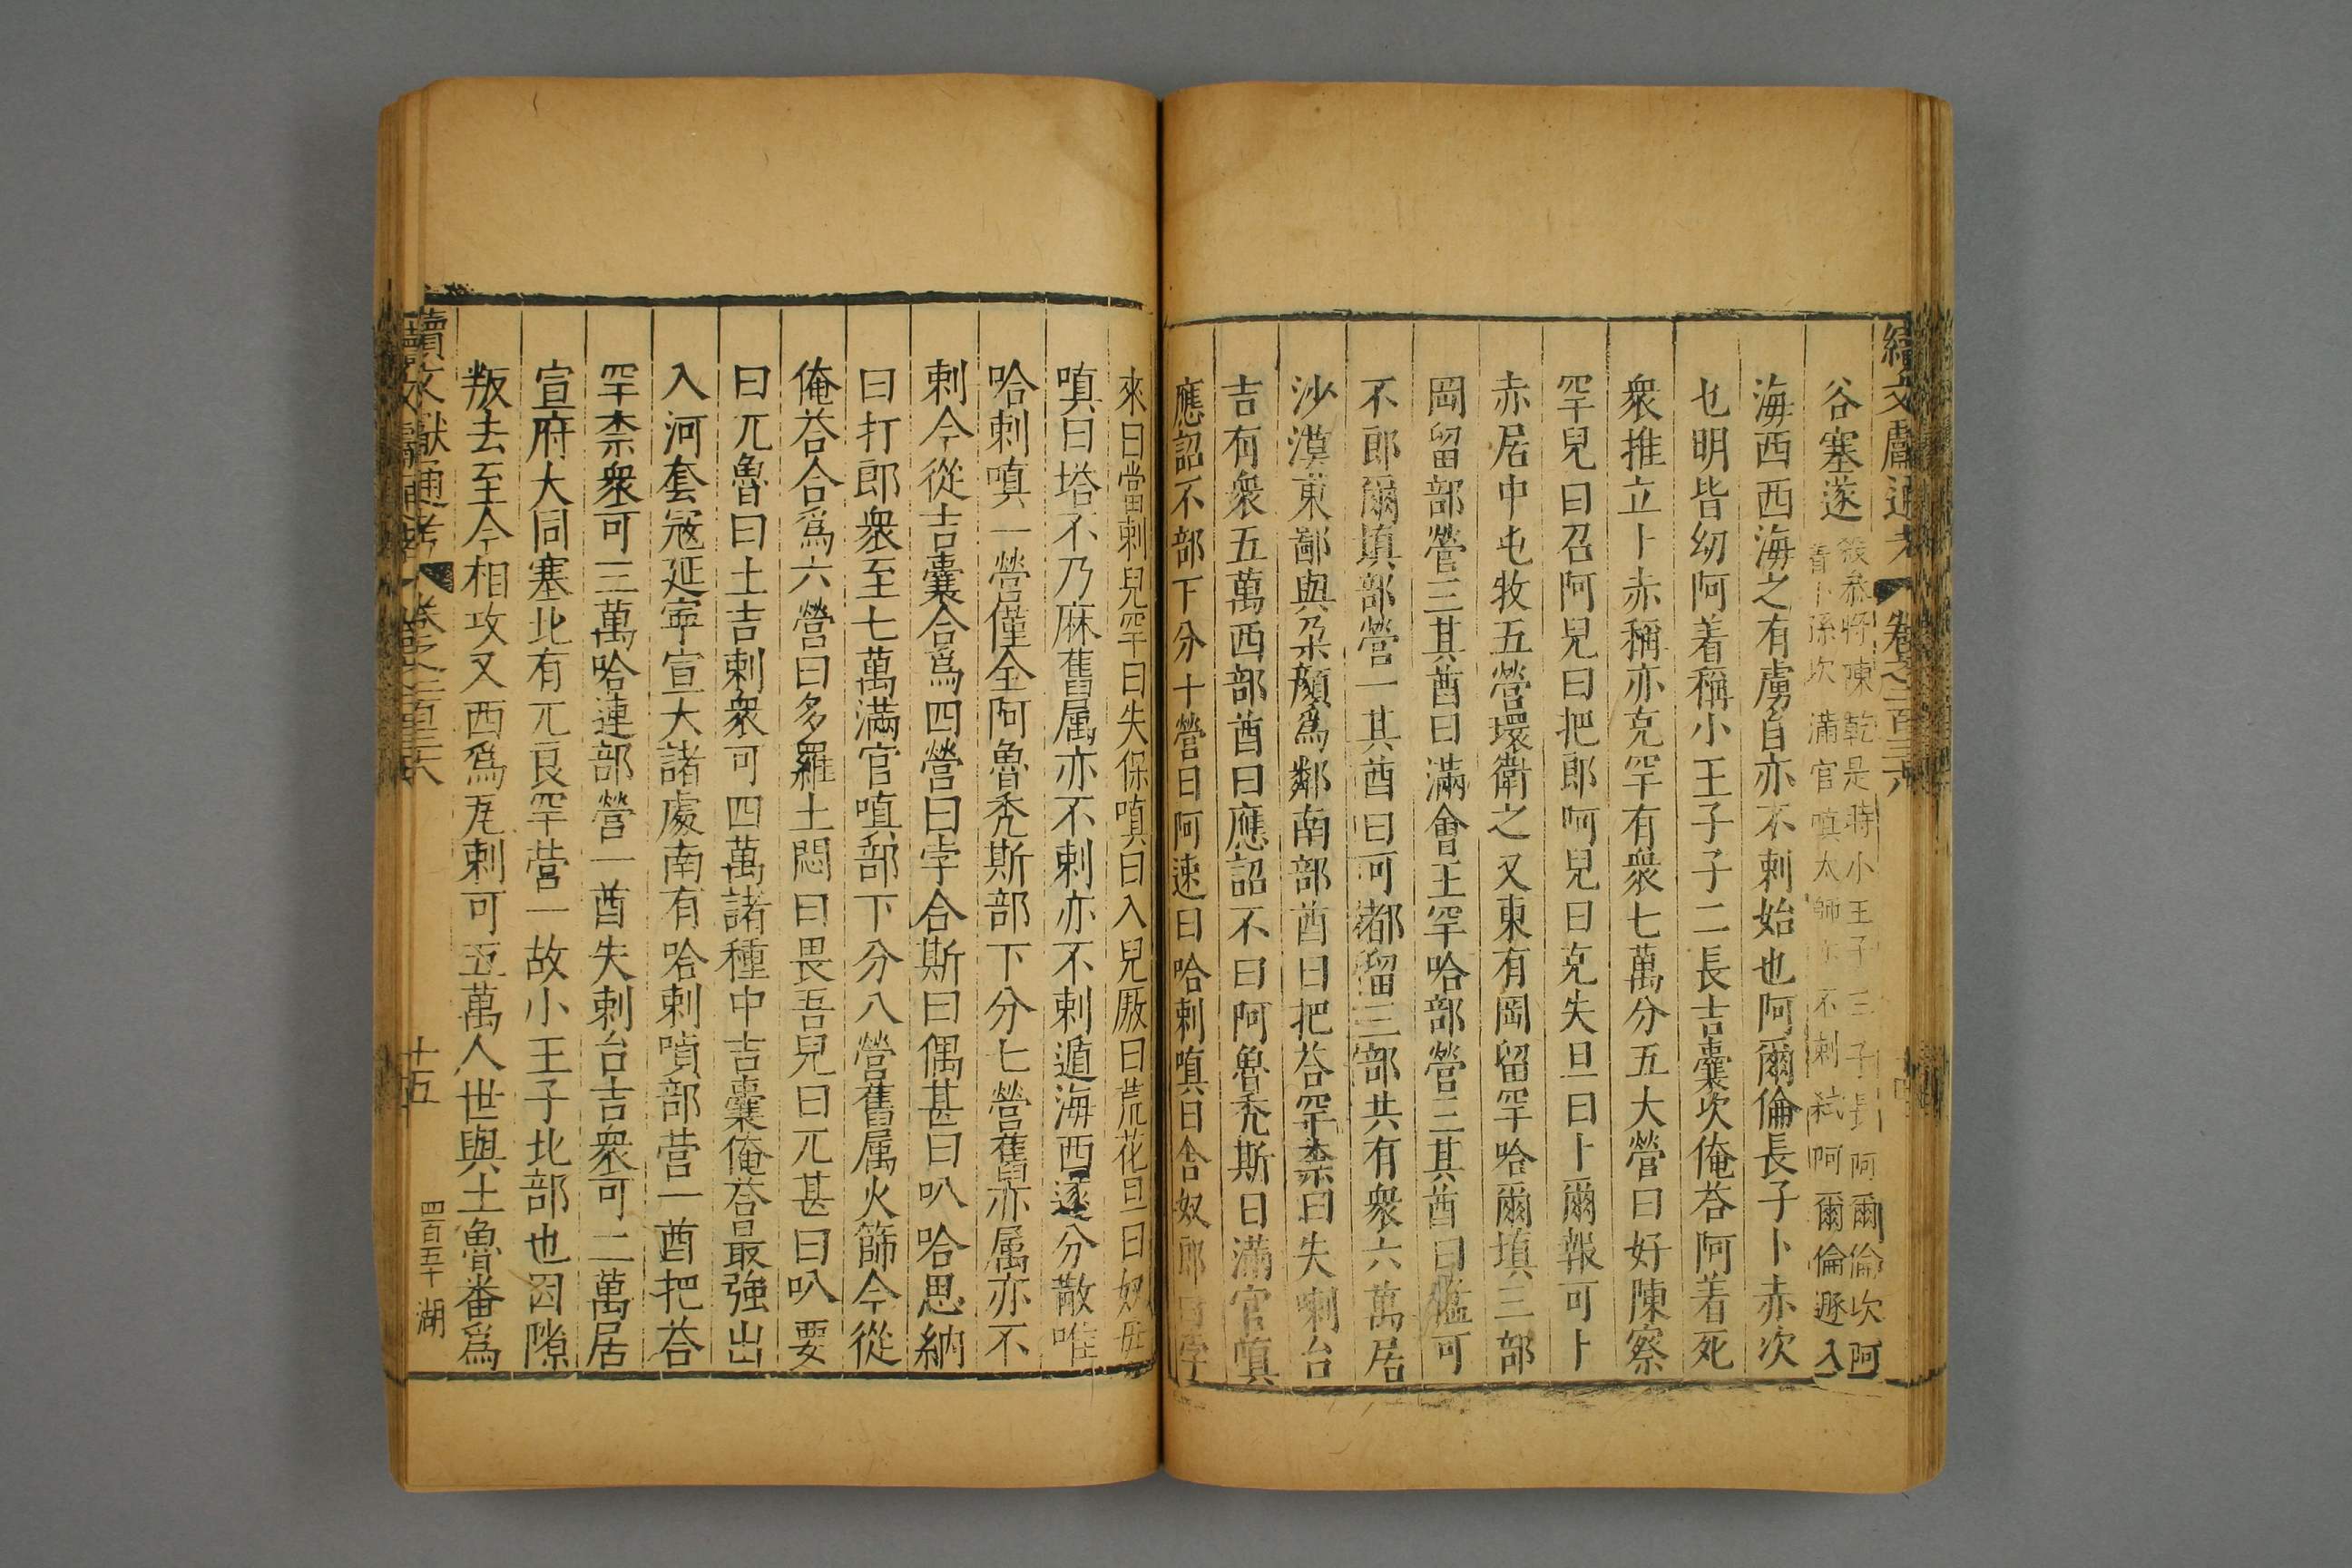 續文獻通考 卷之二百三十六
谷塞遂 殺叅將陳乾是時小王子三子長阿爾倫次阿
着卜孫次滿官嗔太師亦不剌弑阿爾倫遯入
海西西海之有虜自亦不剌始也阿爾倫長子卜赤次
乜明皆幼阿着稱小王子子二長吉囊次俺荅阿着死
衆推立卜赤稱亦克罕有衆七萬分五大營曰好陳察
罕兒曰召阿兒曰把郎阿兒曰克失旦曰卜爾報可卜
赤居中屯牧五營環衛之又東有岡留罕哈爾填三部
岡留部營三其酋曰滿會王罕哈部營三其酋曰可
不郎爾填部營一其酋曰可都留三部共有衆六萬居
沙漠東鄙與朶顏爲鄰南部酋曰把荅罕柰曰失喇台
吉有衆五萬西部酋曰應詔不曰阿魯禿斯曰滿官嗔
應詔不部下分十營曰阿速曰哈剌嗔曰舍奴郎曰孛
來曰當剌兒罕曰失保嗔曰入兒厫曰荒花旦曰奴母
嗔曰塔不乃麻舊属亦不剌亦不剌遁海西遂分散唯
哈剌嗔一營僅全阿魯禿斯部下分七營舊亦属亦不
剌今從吉囊合爲四營曰孛合斯曰偶甚曰叭哈思納
曰打郎衆至七萬滿官嗔部下分八營舊属火篩今從
俺荅合爲六營曰多羅土悶曰畏吾兒曰兀甚曰叭要
曰兀魯曰土吉剌衆可四萬諸種中吉囊俺荅最強出
入河套寇延寧宣大諸處南有哈剌嗔部营一酋把荅
罕柰衆可三萬哈連部營一酋失剌台吉衆可二萬居
宣府大同塞北有兀良罕营一故小王子北部也因隙
叛去至今相攻又西爲瓦剌可五萬人世與土魯番爲
續文獻通考 卷之二百三十六 十五 四百五十 湖